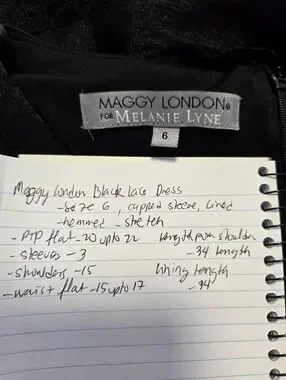 MAGGY LONDON®
FOR MELANIE LYNE
6
Maggy London Black Lace Dress
- Size 6, capped sleeve, lined
- hemmed - stretch
- PTP flat - 20 upto 22
- sleeves - 3
- shoulders - 15
- waist flat - 15 upto 17
length from shoulder
- 34 length
lining length
- 34